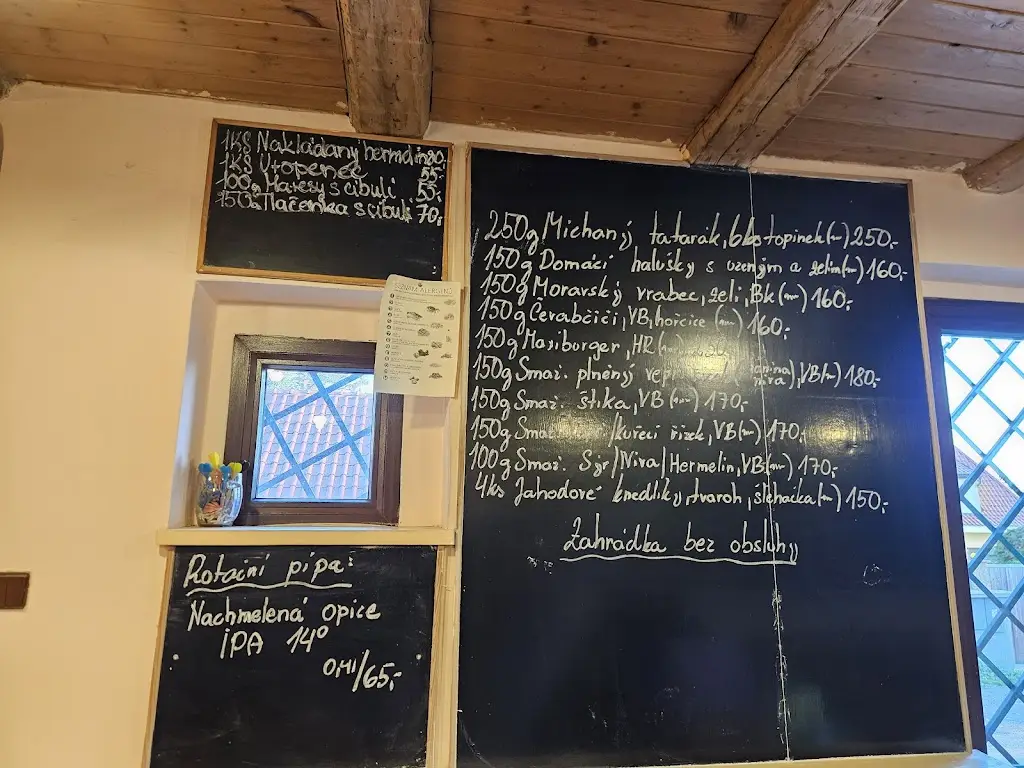 1KS Nakládaný hermelín 80,-
1KS Utopenec 55,-
100g Matesy s cibulí 55,-
150g Tlačenka s cibulí 70,-
SEZNAM ALERGENŮ
250g Míchaný tatarák, 6ks topinek 250,-
150g Domácí halušky s uzeným a zelím 160,-
150g Moravský vrabec, zelí, Bk 160,-
150g Čevabčiči, VB, hořčice 160,-
150g Maxiburger, HR
150g Smaž. plněný niva), VB 180,-
150g Smaž. štika, VB 170,-
150g /kuřecí řízek, VB 170,-
100g Smaž. Sýr/Niva/Hermelín, VB 170,-
4ks Jahodové knedlíky, tvaroh, šlehačka 150,-
Zahrádka bez obsluhy
Rotační pípa:
Nachmelená opice
IPA 14°
0,4l/65,-